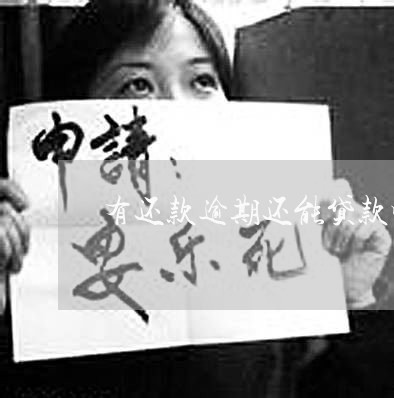 申請：
有还款逾期还能贷款
安乐死